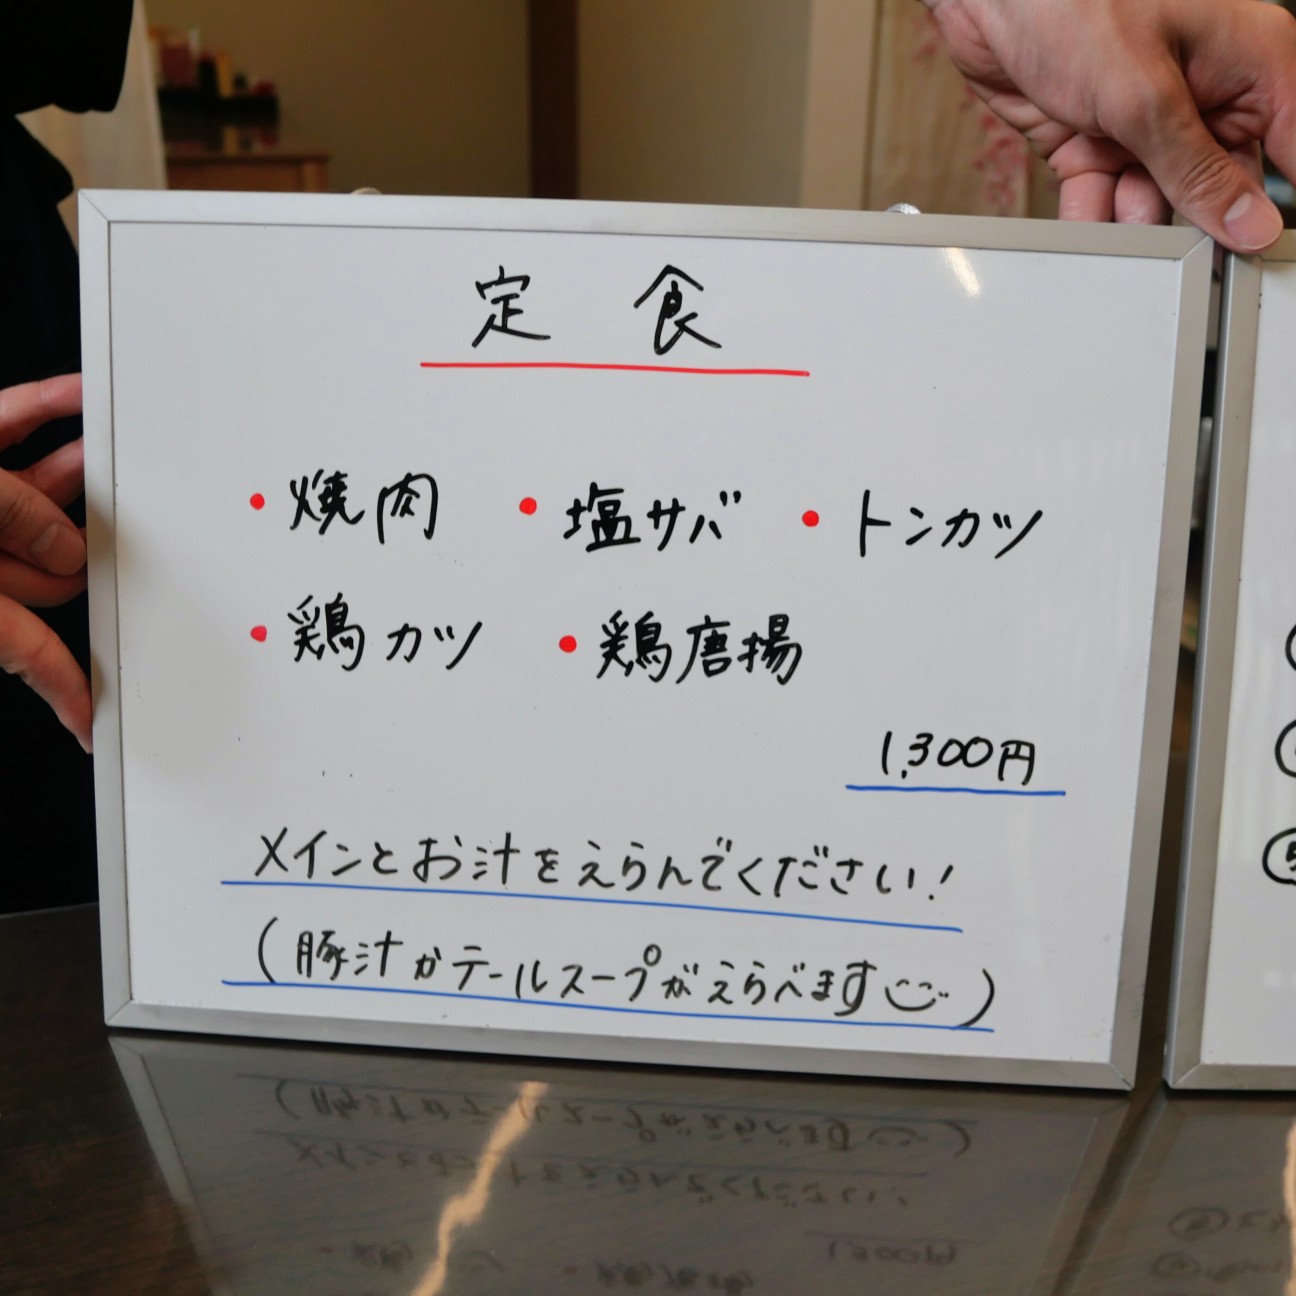 定食
・焼肉 ・塩サバ ・トンカツ
・鶏カツ ・鶏唐揚
1,300円
メインとお汁をえらんでください!
(豚汁かテールスープがえらべます)